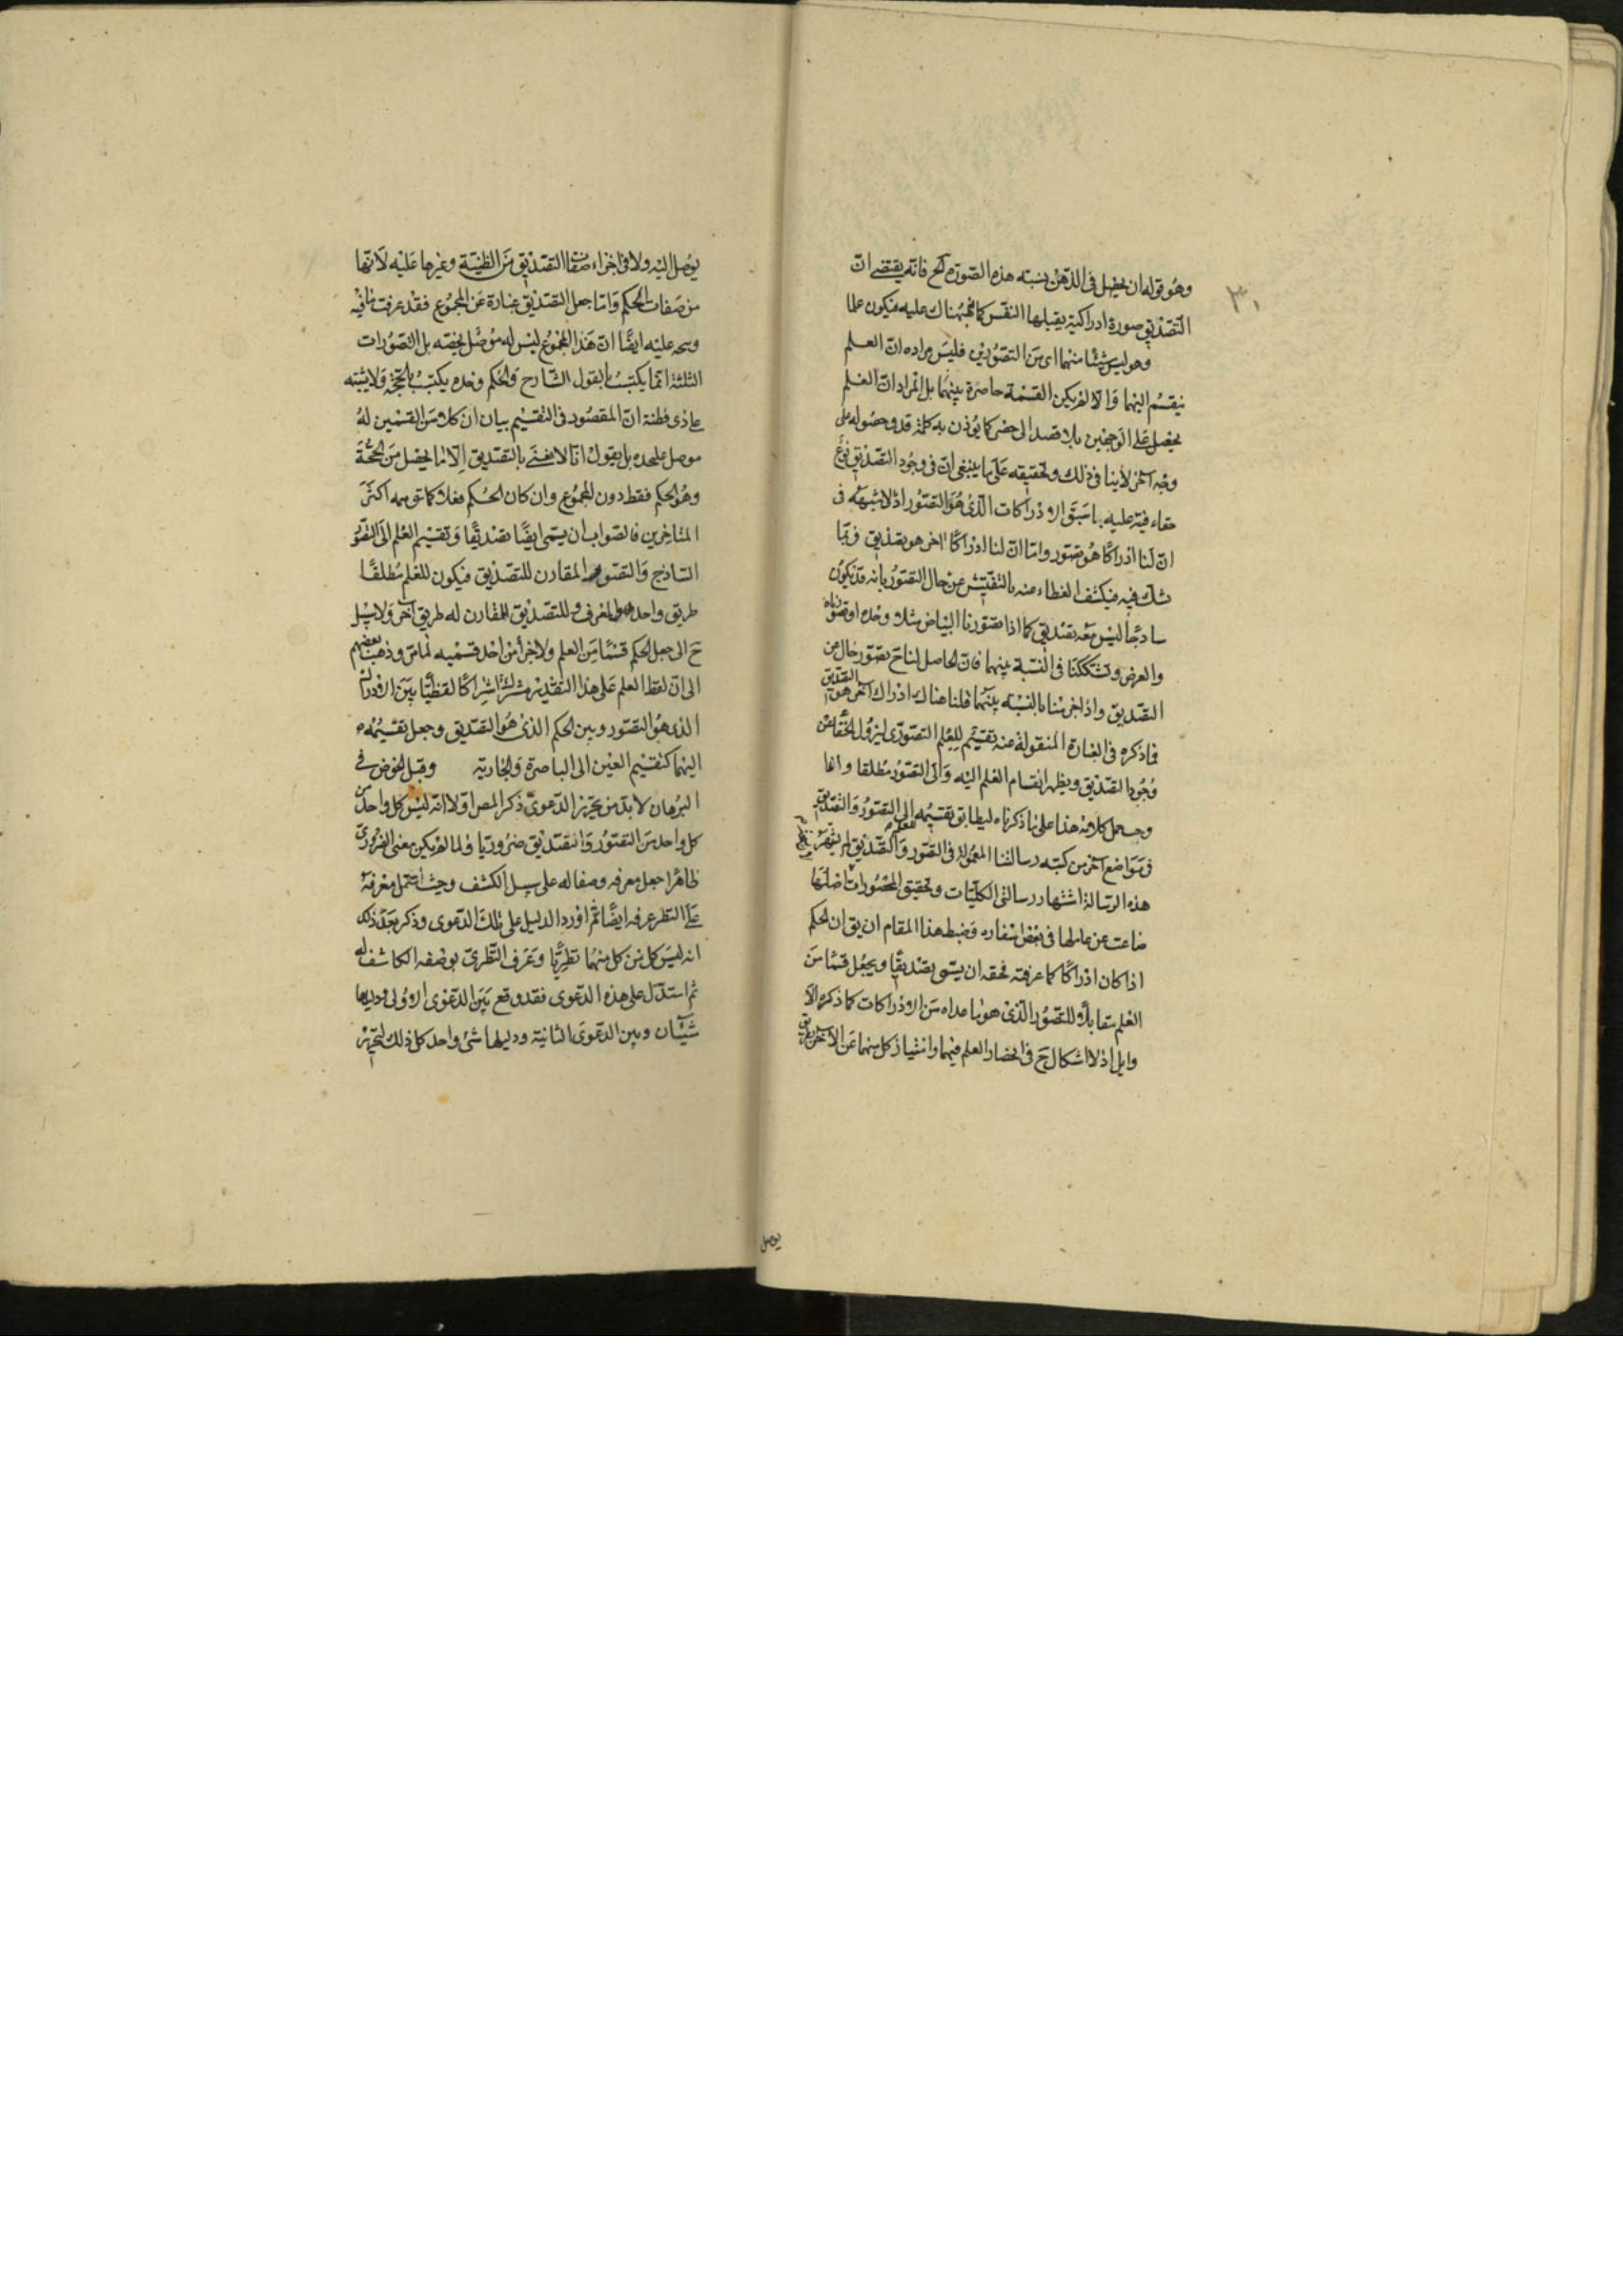 ٣٠
وهو قوله ان يحصل في الذهن نسبة هذه الصورة الخ فانه يقتضى ان
التصديق صورة ادراكية يقبلها النفس كما نبهناك عليه فيكون علما
وهو ليس شيئا منهما اى من التصورين فليس مراده ان العلم
ينقسم اليهما والا لم يكن القسمة حاصرة بينهما بل المراد ان العلم
يحصل على الوجهين بلا قصد الى حصر كما يؤذن به كلمة قد وحصوله على
وجه آخر لا ينافى ذلك وتحقيقه على ما ينبغى ان فى وجود التصديق نوع
خفاء فنبه عليه بما سبق الادراكات الذى هو التصور اذ لا شبهة فى
ان لنا ادراكا هو تصور واما ان لنا ادراكا اخر هو تصديق فربما
شك فيه فيكشف الغطاء عنه بالتفتيش عن حال التصور بانه قد يكون
ساذجا ليس معه تصديق كما اذا تصورنا البياض مثلا وحده او تصورناه
والعرض وتشككنا فى النسبة بينهما فان الحاصل لنا ح تصور خال من
التصديق واذا جزمنا بالنسبة بينهما فلنا هناك ادراك آخر هو التصديق
فما ذكره فى العبارة المنقولة عنه تقسيم للعلم التصورى ليزول الخفاء عن
وجود التصديق ويظهر انقسام العلم اليه والى التصور مطلقا وانما
وجب حمل كلامه هذا على ما ذكرناه ليطابق تقسيمه الى التصور والتصديق
فى مواضع آخر من كتبه رسالتنا المعمولة فى التصور والتصديق لم يشتهر
هذه الرسالة اشتهار رسالتى الكليات وتحقيق المحصورات اصلها
ضاعت عن عاملها فى بعض اسفاره وضبط هذا المقام ان يق ان الحكم
اذا كان ادراكا كما عرفته فحقه ان يسمى تصديقا ويجعل قسما من
العلم مقابلا للتصور الذى هو ما عداه من الادراكات كما ذكره الا
وايل اذ لا اشكال ح فى انحصار العلم فيهما وامتياز كل منهما عن الآخر بطريق
يوصل
يوصل اليه ولا فى اجراء صفات التصديق من الظنية وغيرها عليه لانها
من صفات الحكم واما جعل التصديق عبارة عن المجموع فقد عرفت ما فيه
ويتجه عليه ايضا ان هذا المجموع ليس له موصل يخصه بل التصورات
الثلثة انما يكتسب بالقول الشارح والحكم وحده يكتسب بالحجة ولا يشتبه
على ذى فطنة ان المقصود فى التقسيم بيان ان كلا من القسمين له
موصل علىحده بل يقول انا لا نعنى بالتصديق الا ما يحصل من الحجة
وهو الحكم فقط دون المجموع وان كان الحكم فعلا كما توهمه اكثر
المتاخرين فالصواب ان يسمى ايضا تصديقا وتقسيم العلم الى التصور
الساذج والتصور المقارن للتصديق فيكون للعلم مطلقا
طريق واحد هو المعرف وللتصديق المقارن له طريق آخر ولا سبيل
ح الى جعل الحكم قسما من العلم ولا جزأ من احد قسميه لما مر وذهب بعضهم
الى ان لفظ العلم على هذا التقدير مشترك اشتراكا لفظيا بين الادراك
الذى هو التصور وبين الحكم الذى هو التصديق وجعل تقسيمه
اليهما كتقسيم العين الى الباصرة والجارية وقبل الخوض فى
البرهان لا بد من تحرير الدعوى ذكر المص اولا انه ليس كل واحد من
كل واحد من التصور والتصديق ضروريا ولما لم يكن معنى الضرورى
ظاهرا جعل معرفه وصفا له على سبيل الكشف وحيث اشتمل معرفه
على النظر عرفه ايضا ثم اورد الدليل على تلك الدعوى وذكر بعد ذلك
انه ليس كل من كل منهما نظريا وعرف النظرى بوصفه الكاشف له
ثم استدل على هذه الدعوى فقد وقع بين الدعوى الاولى ودليلها
شيئان وبين الدعوى الثانية ودليلها شئ واحد كل ذلك لتحرير